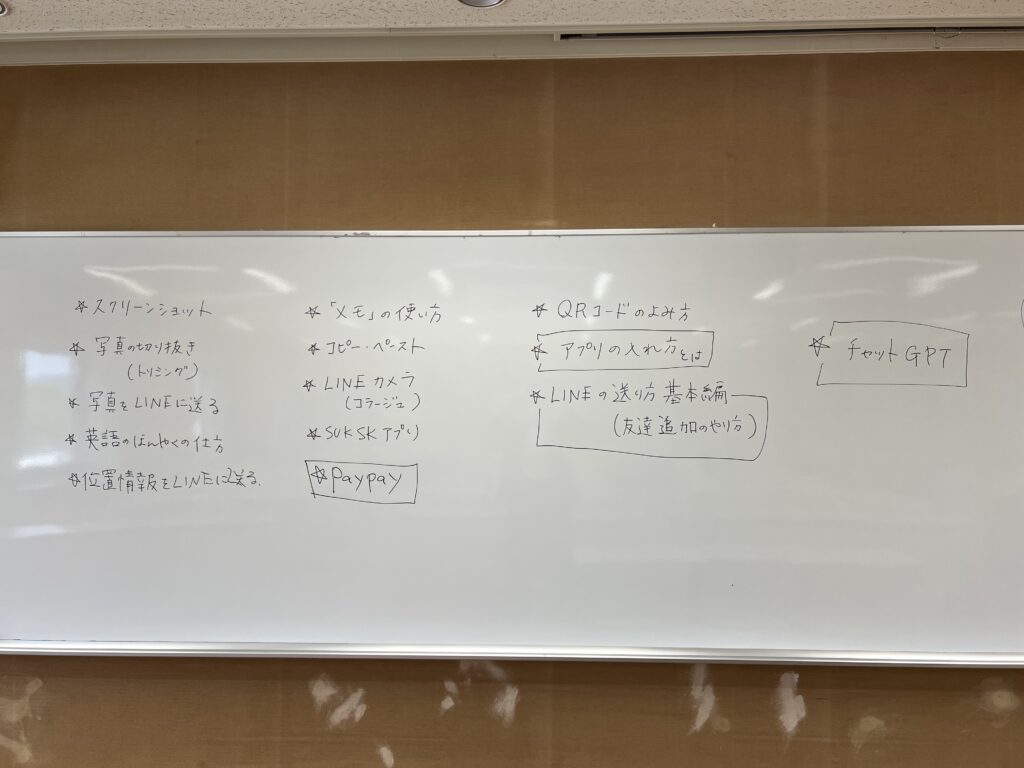 ☆スクリーンショット
☆ 写真の切り抜き
(トリミング)
☆ 写真をLINEに送る
☆ 英語のほんやくの仕方
☆位置情報をLINEに送る.
☆「メモ」の使い方
☆コピー・ペースト
☆LINE カメラ
(コラージュ)
☆SUKSKアプリ
☆Paypay
☆ QRコードのよみ方
☆ アプリの入れ方とは
☆LINEの送り方 基本編
(友達追加のやり方)
☆ チャットGPT